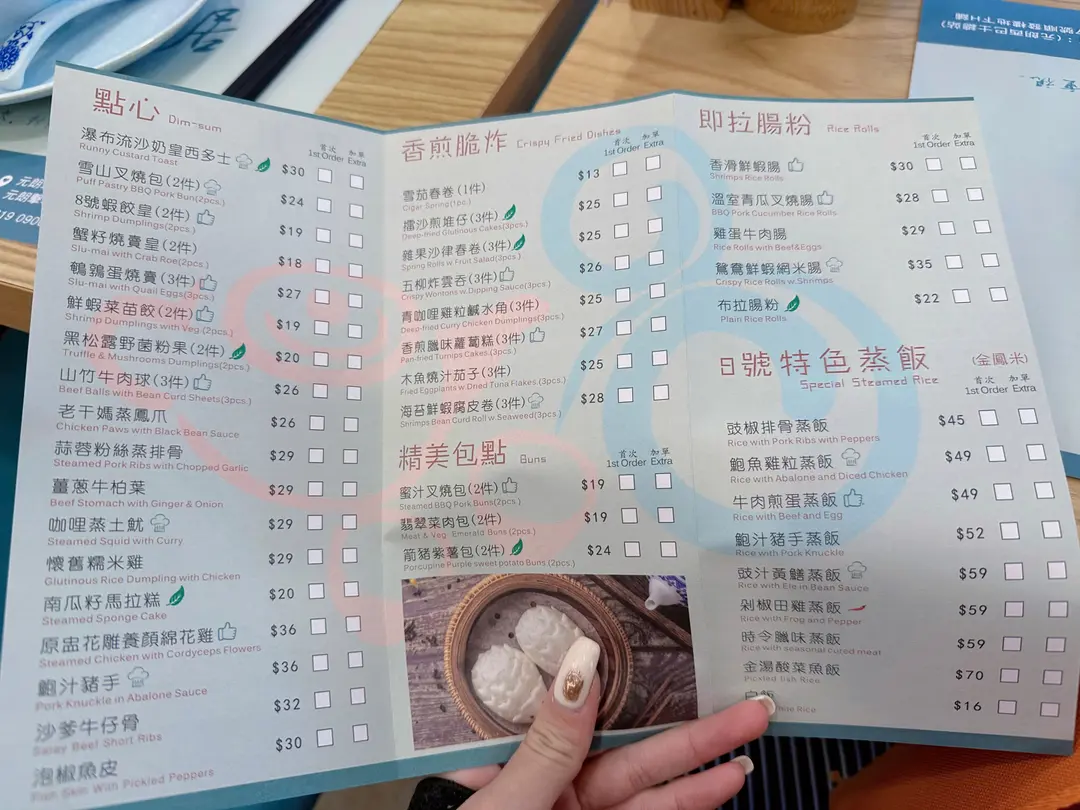 點心 Dim-sum
首次 加單
1st Order Extra
瀑布流沙奶皇西多士 $30
Runny Custard Toast
雪山叉燒包(2件) $24
Puff Pastry BBQ Pork Bun(2pcs.)
8號蝦餃皇(2件) $19
Shrimp Dumplings(2pcs.)
蟹籽燒賣皇(2件) $18
Siu-mai with Crab Roe(2pcs.)
鵪鶉蛋燒賣(3件) $27
Siu-mai with Quail Eggs(3pcs.)
鮮蝦菜苗餃(2件) $19
Shrimp Dumplings with Veg.(2pcs.)
黑松露野菌粉果(2件) $20
Truffle & Mushrooms Dumplings(2pcs.)
山竹牛肉球(3件) $26
Beef Balls with Bean Curd Sheets(3pcs.)
老干媽蒸鳳爪 $26
Chicken Paws with Black Bean Sauce
蒜蓉粉絲蒸排骨 $29
Steamed Pork Ribs with Chopped Garlic
薑蔥牛柏葉 $29
Beef Stomach with Ginger & Onion
咖哩蒸土魷 $29
Steamed Squid with Curry
懷舊糯米雞 $29
Glutinous Rice Dumpling with Chicken
南瓜籽馬拉糕 $20
Steamed Sponge Cake
原盅花雕養顏綿花雞 $36
Steamed Chicken with Cordyceps Flowers
鮑汁豬手 $36
Pork Knuckle in Abalone Sauce
沙爹牛仔骨 $32
Satay Beef Short Ribs
泡椒魚皮 $30
Fish Skin With Pickled Peppers
香煎脆炸 Crispy Fried Dishes
首次 加單
1st Order Extra
雪茄春卷(1件) $13
Cigar Spring(1pc.)
擂沙煎堆仔(3件) $25
Deep-fried Glutinous Cakes(3pcs.)
雜果沙律春卷(3件) $25
Spring Rolls w.Fruit Salad(3pcs.)
五柳炸雲吞(3件) $26
Crispy Wontons w.Dipping Sauce(3pcs.)
青咖哩雞粒鹹水角(3件) $25
Deep-fried Curry Chicken Dumplings(3pcs.)
香煎臘味蘿蔔糕(3件) $27
Pan-fried Turnips Cakes(3pcs.)
木魚燒汁茄子(3件) $25
Fried Eggplants w.Dried Tuna Flakes.(3pcs.)
海苔鮮蝦腐皮卷(3件) $28
Shrimps Bean Curd Roll w.Seaweed(3pcs.)
精美包點 Buns
首次 加單
1st Order Extra
蜜汁叉燒包(2件) $19
Steamed BBQ Pork Buns(2pcs.)
翡翠菜肉包(2件) $19
Meat & Veg. Emerald Buns(2pcs.)
箭豬紫薯包(2件) $24
Porcupine Purple sweet potato Buns(2pcs.)
即拉腸粉 Rice Rolls
首次 加單
1st Order Extra
香滑鮮蝦腸 $30
Shrimps Rice Rolls
溫室青瓜叉燒腸 $28
BBQ Pork Cucumber Rice Rolls
雞蛋牛肉腸 $29
Rice Rolls with Beef&Eggs
鴛鴦鮮蝦網米腸 $35
Crispy Rice Rolls w.Shrimps
布拉腸粉 $22
Plain Rice Rolls
8號特色蒸飯 (金鳳米)
Special Steamed Rice
首次 加單
1st Order Extra
豉椒排骨蒸飯 $45
Rice with Pork Ribs with Peppers
鮑魚雞粒蒸飯 $49
Rice with Abalone and Diced Chicken
牛肉煎蛋蒸飯 $49
Rice with Beef and Egg
鮑汁豬手蒸飯 $52
Rice with Pork Knuckle
豉汁黃鱔蒸飯 $59
Rice with Ele in Bean Sauce
剁椒田雞蒸飯 $59
Rice with Frog and Pepper
時令臘味蒸飯 $59
Rice with seasonal cured meat
金湯酸菜魚飯 $70
Pickled fish Rice
白飯 $16
Rice
居